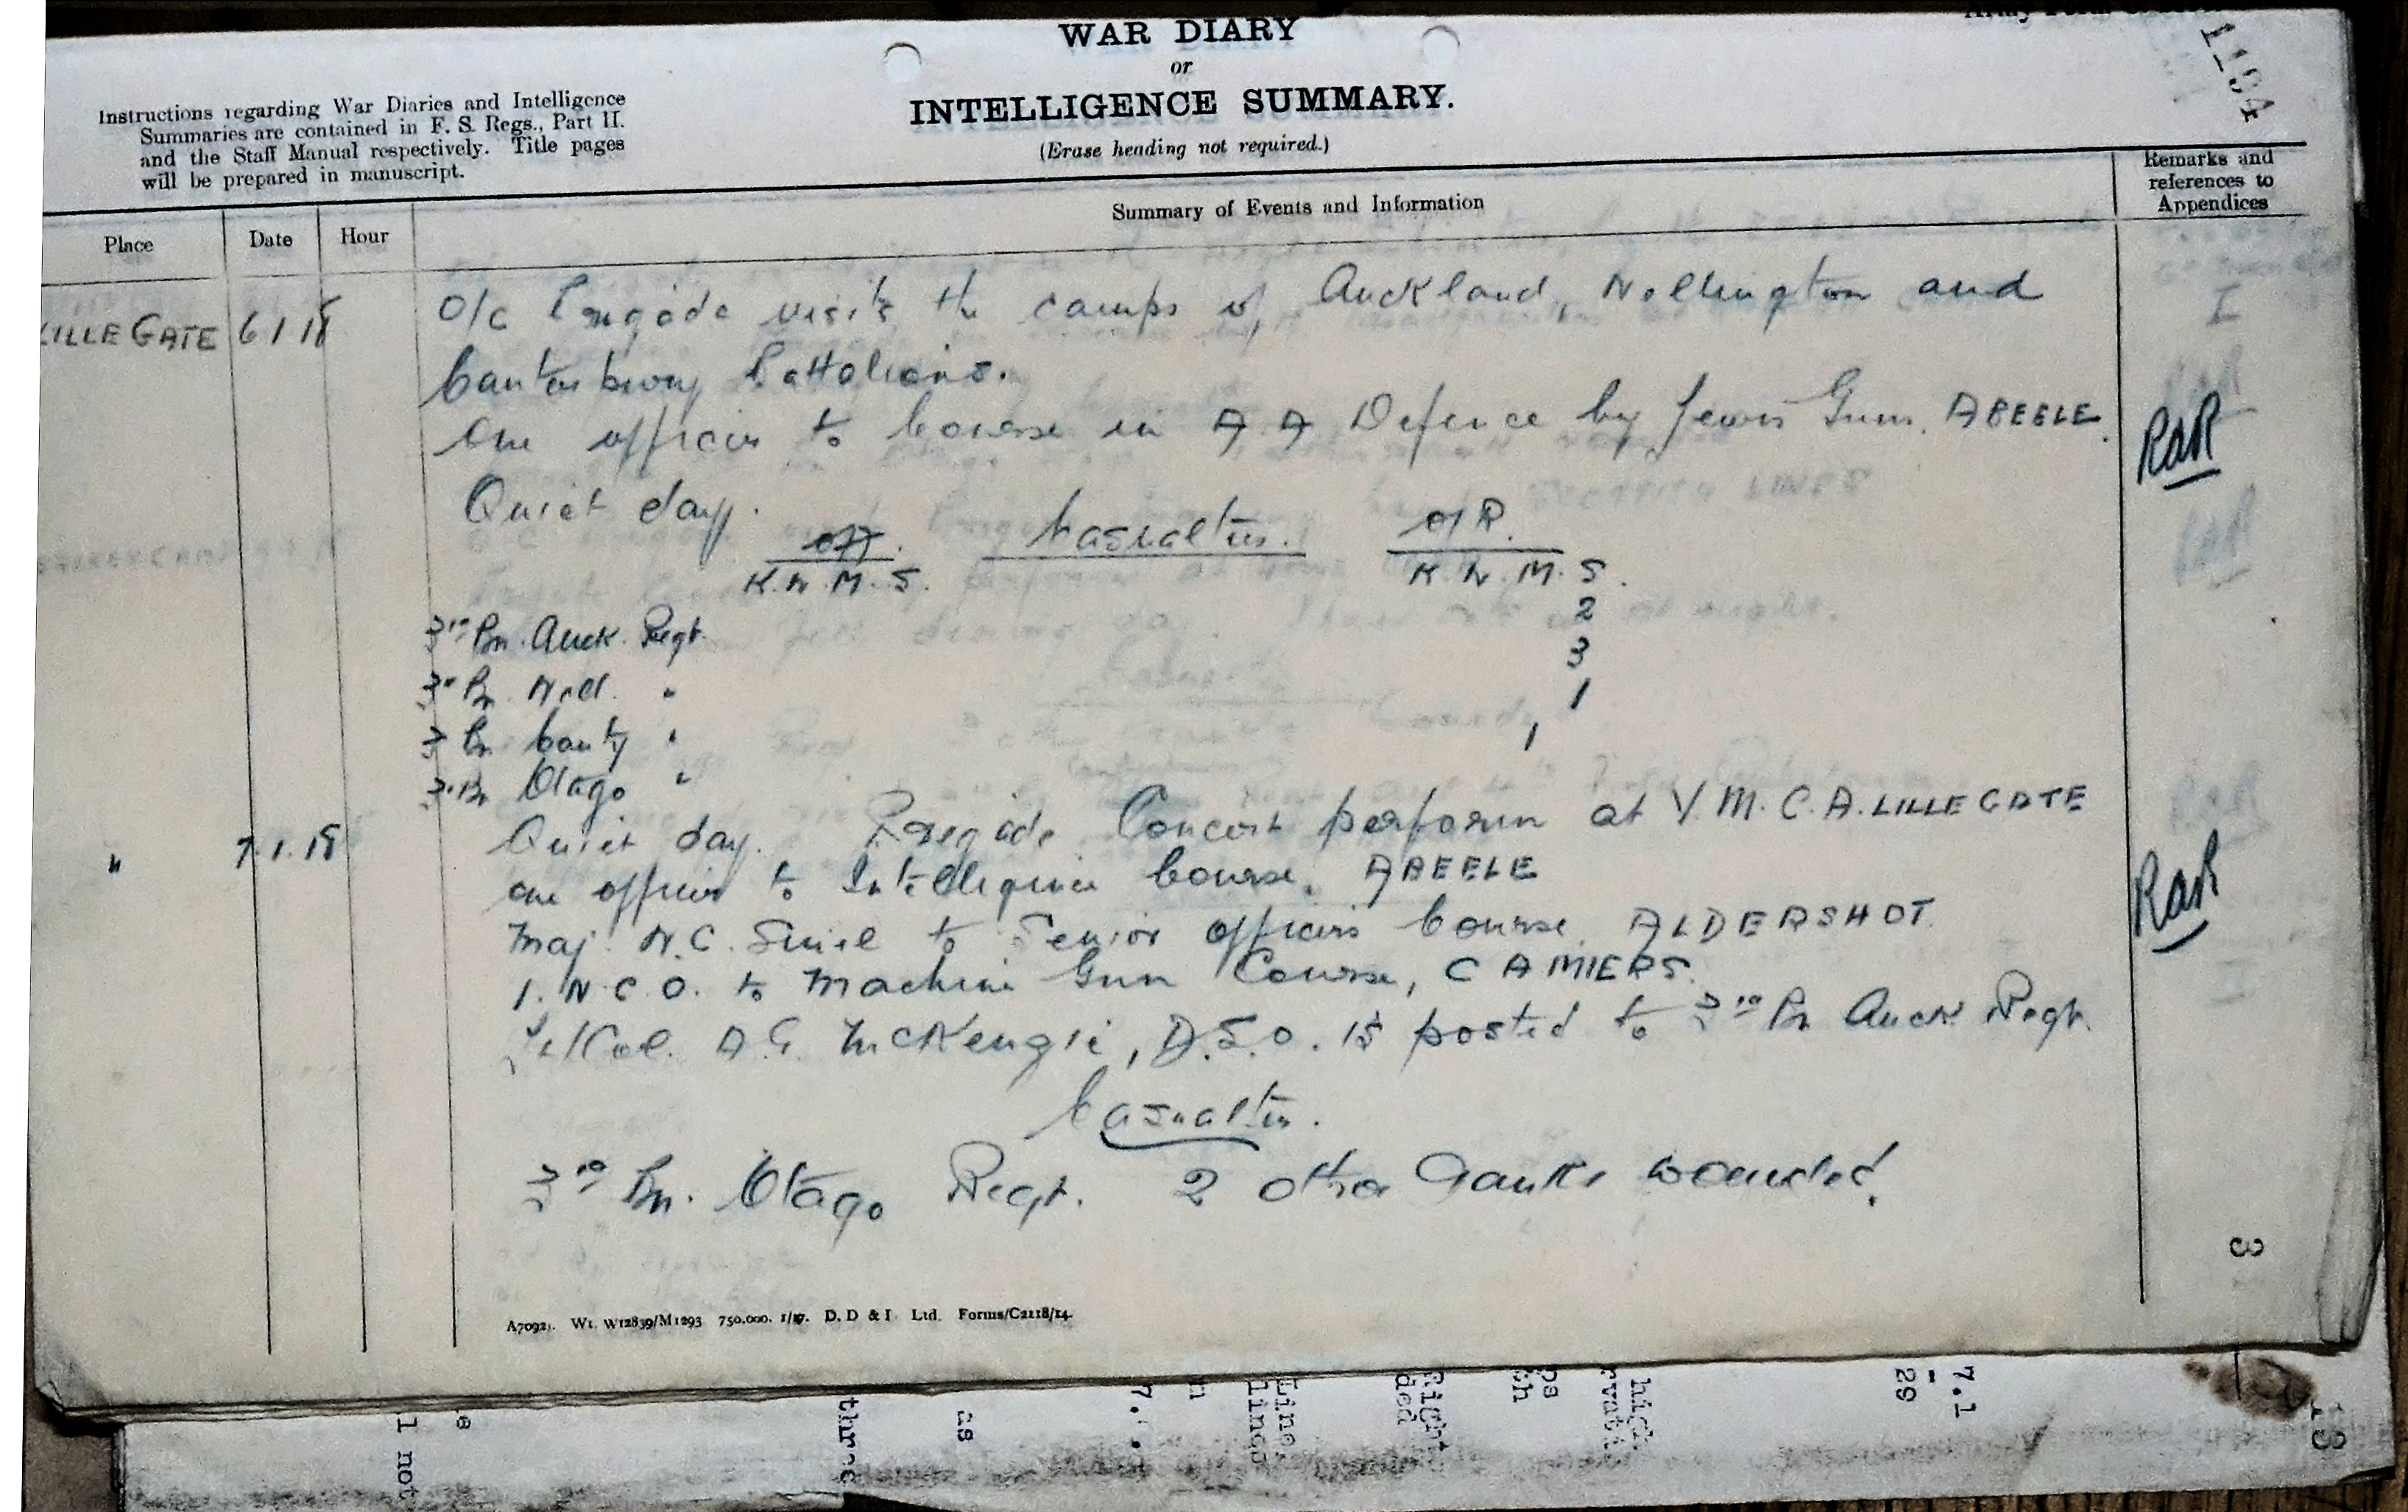 WAR DIARY
or
INTELLIGENCE SUMMARY.
(Erase heading not required.)
1194
Instructions regarding War Diaries and Intelligence
Summaries are contained in F. S. Regs., Part II.
and the Staff Manual respectively. Title pages
will be prepared in manuscript.
Place Date Hour Summary of Events and Information Remarks and
references to
Appendices
LILLE GATE 6 1 18 O/C Brigade visits the camps of Auckland, Wellington and
Canterbury Battalions.
One officer to Course in A A Defence by Lewis Guns. ABEELE. RAR
Quiet day.
Off. Casualties. O/R.
K. W. M. S. K. W. M. S.
3rd Bn. Auck. Regt. 2
3rd Bn. Well. " 3
3 Bn Canty " 1
3. Bn Otago " 1
" 7.1.18 Quiet day. Brigade Concert perform at Y.M.C.A. LILLE GATE
one officer to Intelligence Course. ABEELE RAR
Maj. N.C. to Senior Officers Course ALDERSHOT
1. N.C.O. to Machine Gun Course, CAMIERS.
Lt/Col. D.G. McKenzie, D.S.O. is posted to 3rd Bn Auck Regt.
Casualties.
3rd Bn. Otago Regt. 2 other ranks wounded.
3
A7092). Wt. W12839/M1293 750,000. 1/17. D. D & I Ltd. Forms/C2118/14.
7.1
29
thr
l not
as